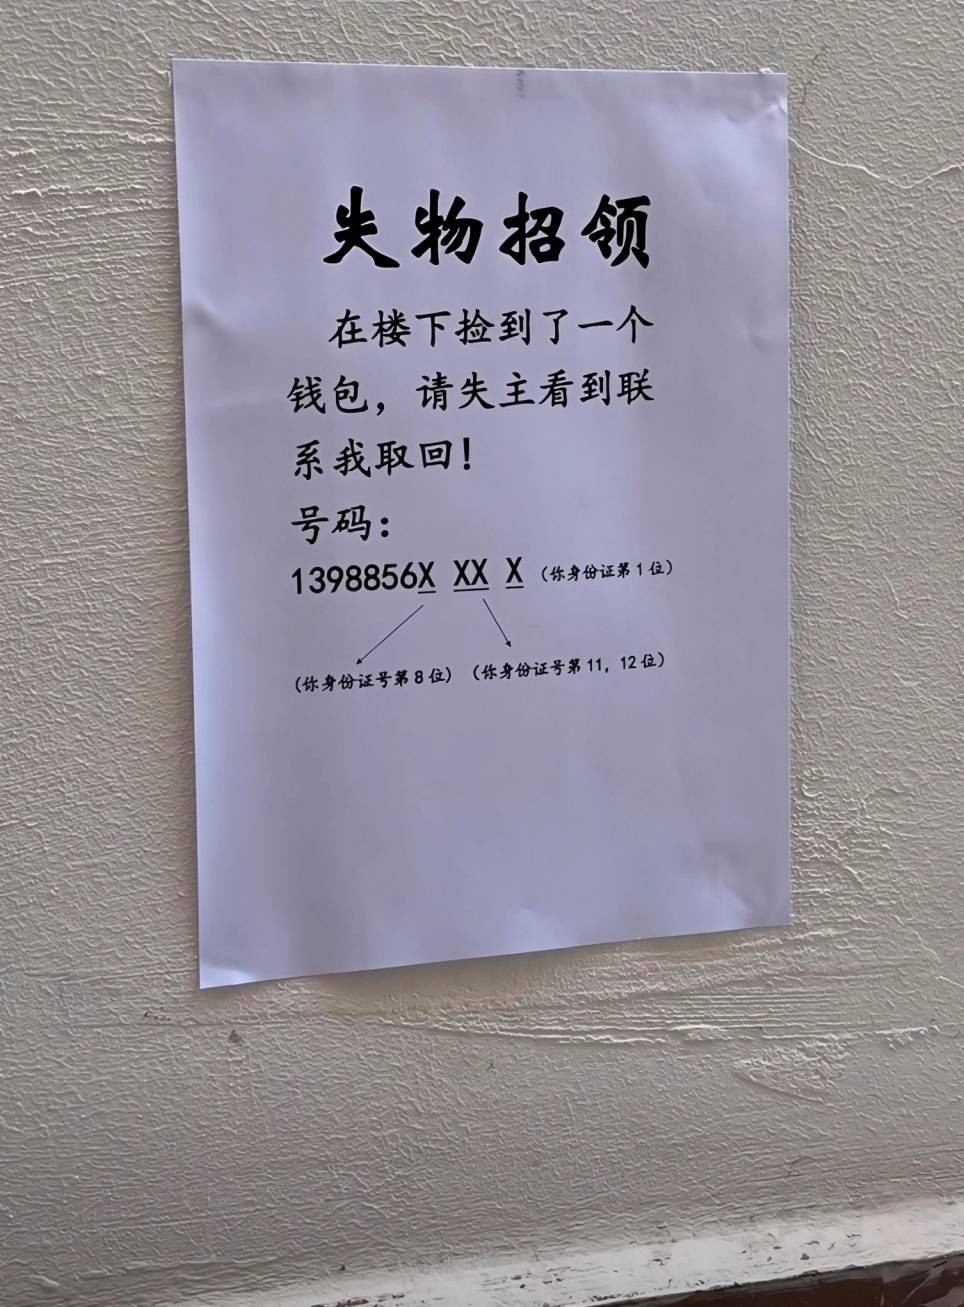 失物招领
在楼下捡到了一个
钱包，请失主看到联
系我取回！
号码：
1398856X XX X（你身份证第1位）
（你身份证号第8位）（你身份证号第11，12位）